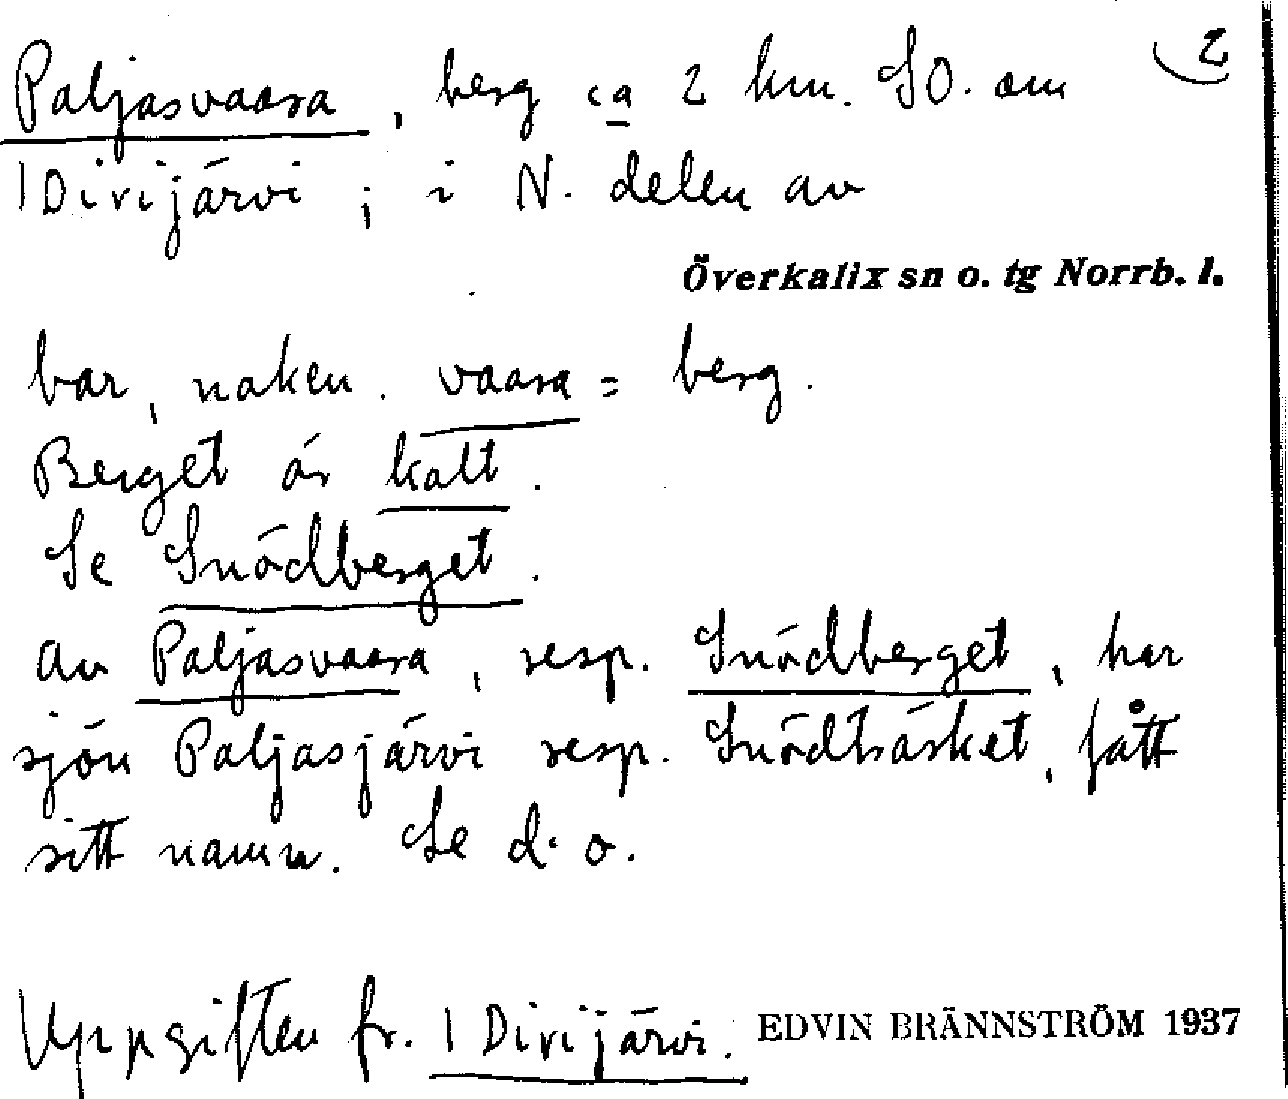 2
Paljasvaara, berg ca 2 km. SO. om
1 Divijärvi ; i N. delen av
Överkalix sn o. tg Norrb. l.
bar, naken. vaara = berg.
Berget är kalt.
Se Snödberget.
Av Paljasvaara, resp. Snödberget, har
sjön Paljasjärvi resp. Snödträsket, fått
sitt namn. Se d. o.
Uppgiften fr. 1 Divijärvi. EDVIN BRÄNNSTRÖM 1937